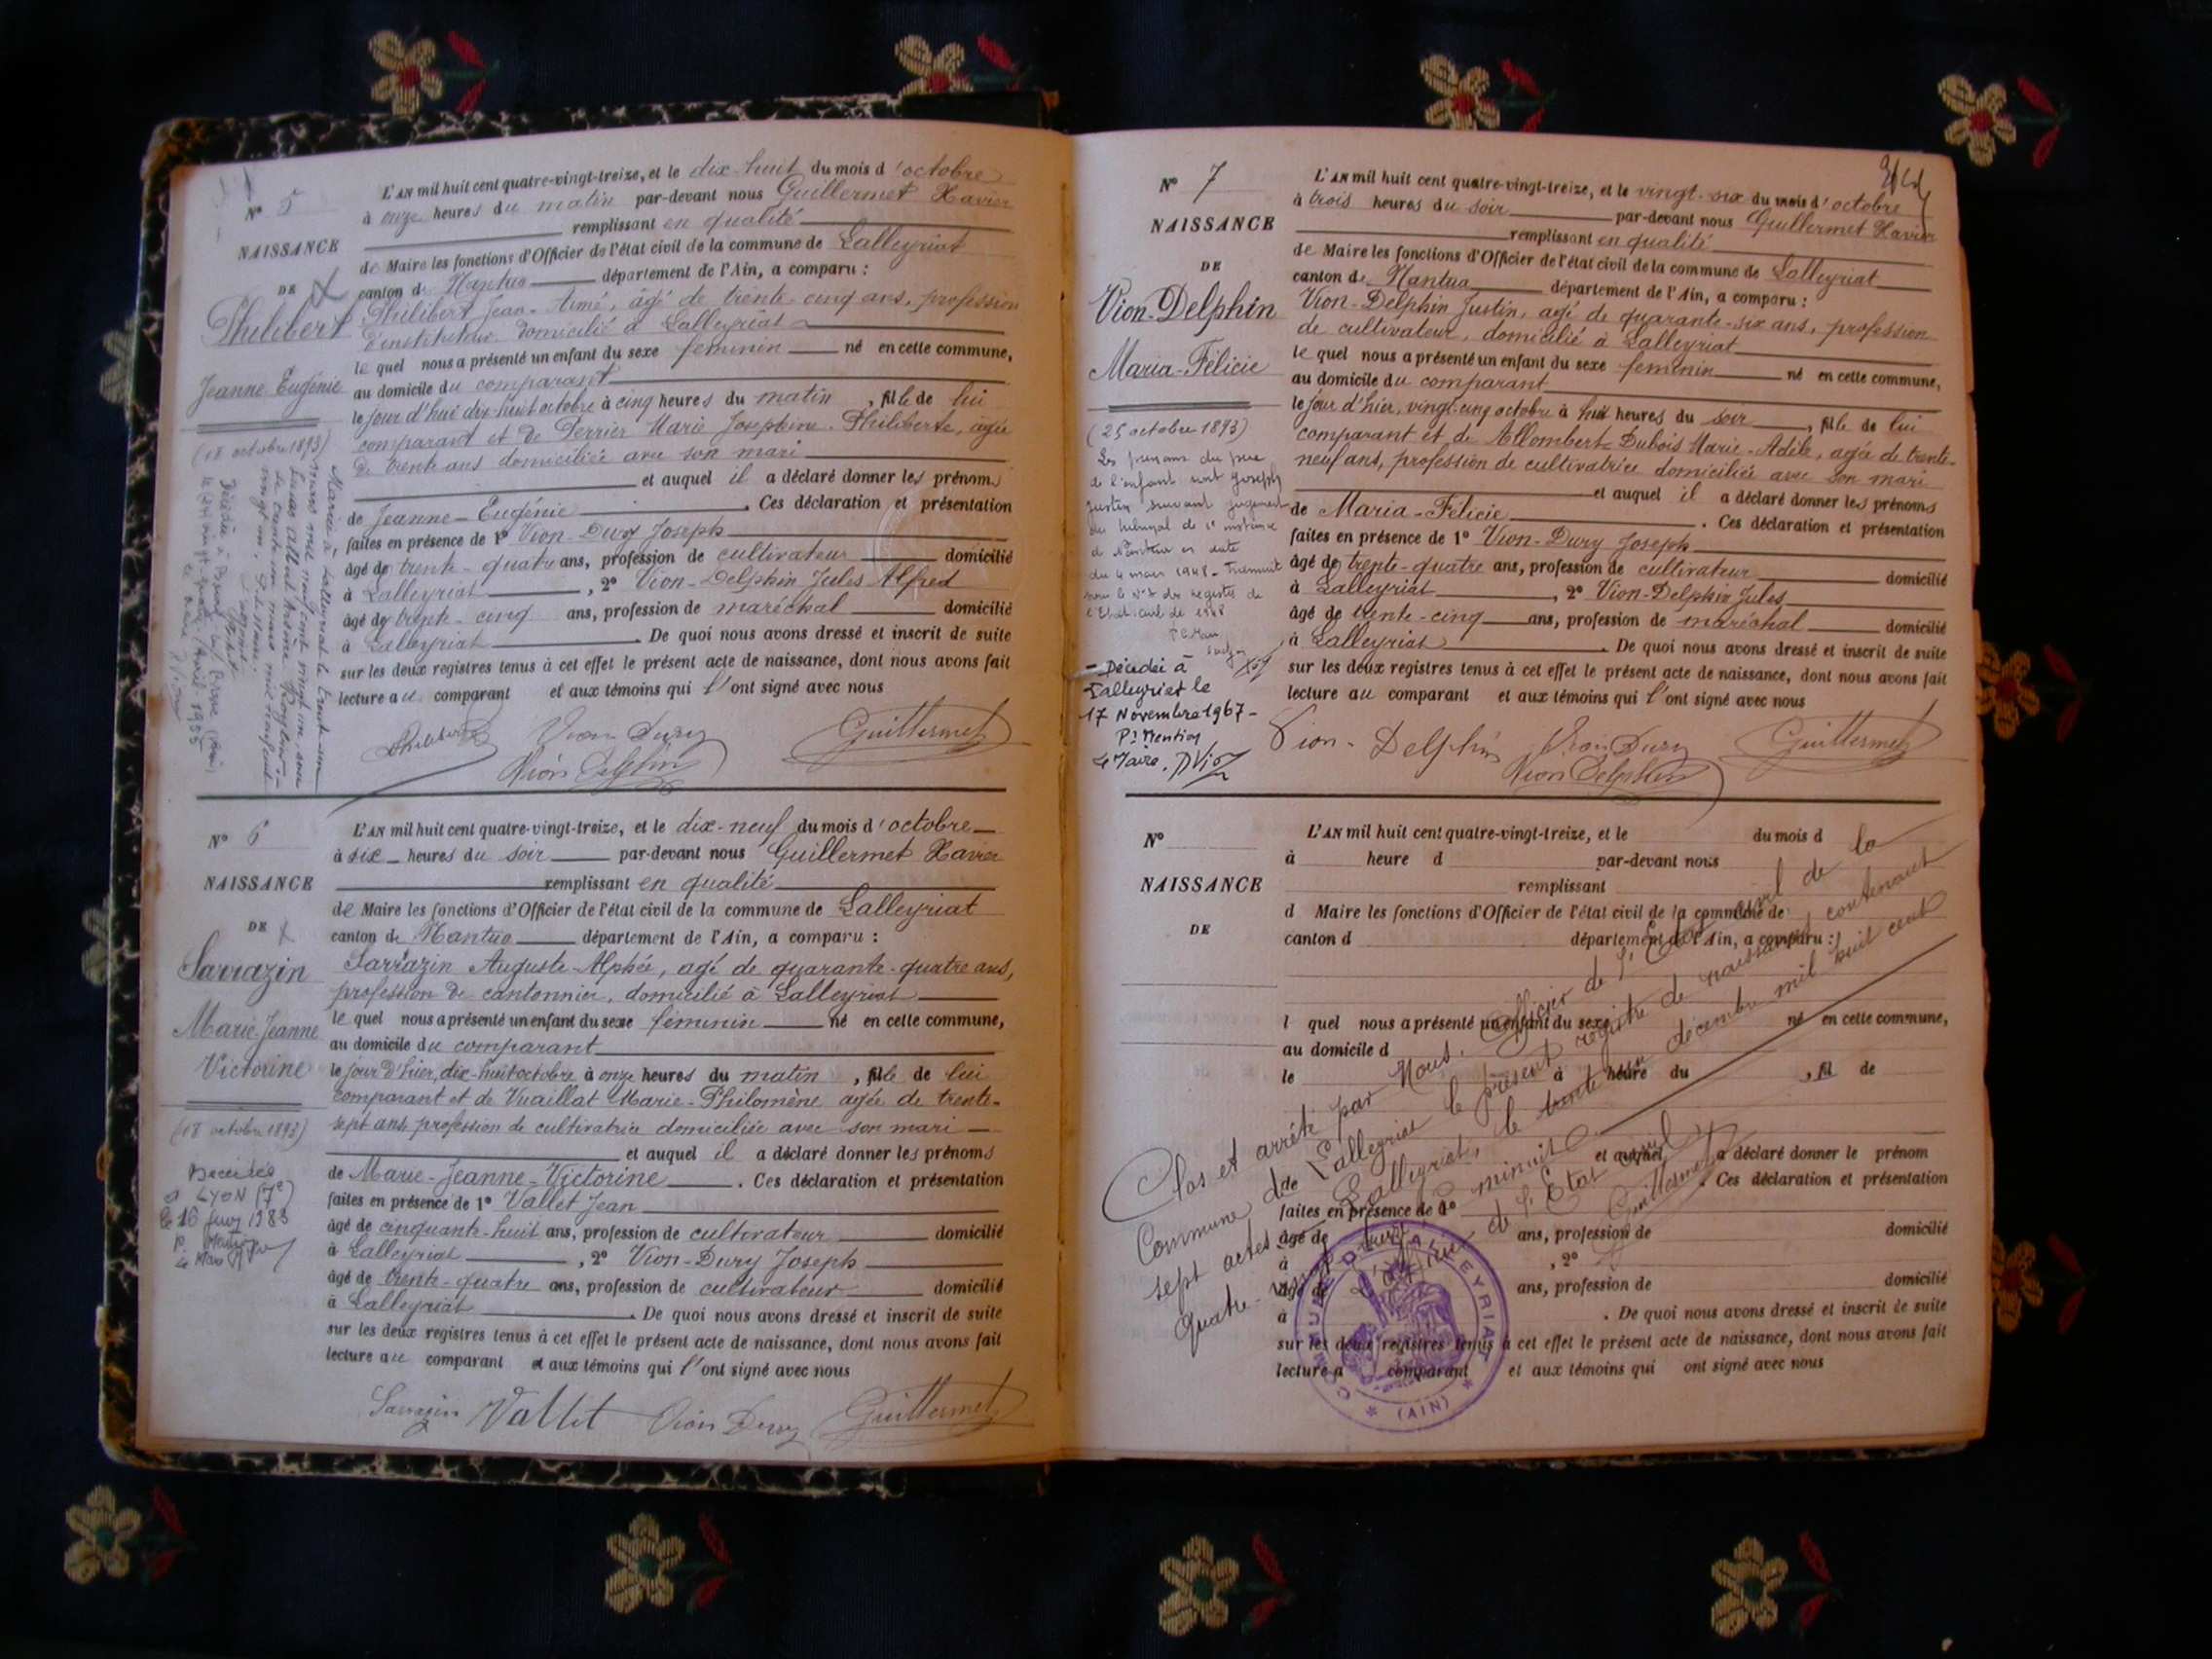 N° 5
NAISSANCE
DE
Philibert
Jeanne Eugénie
(18 octobre 1893)
L'AN mil huit cent quatre-vingt-treize, et le dix-huit du mois d'octobre
à onze heures du matin par-devant nous Guillermet Xavier
remplissant en qualité
de Maire les fonctions d'Officier de l'état civil de la commune de Lalleyriat
canton de Nantua département de l'Ain, a comparu :
Philibert Jean-Aimé, âgé de trente-cinq ans, profession
d'instituteur domicilié à Lalleyriat
lequel nous a présenté un enfant du sexe féminin né en cette commune,
au domicile du comparant
le jour d'hui dix-huit octobre à cinq heures du matin, fille de lui
comparant et de Perrier Marie Joséphine Philiberte, âgée
de trente ans domiciliée avec son mari
et auquel il a déclaré donner les prénoms
de Jeanne-Eugénie. Ces déclaration et présentation
faites en présence de 1° Vion-Dury Joseph
âgé de trente-quatre ans, profession de cultivateur domicilié
à Lalleyriat, 2° Vion-Delphin Jules Alfred
âgé de trente-cinq ans, profession de maréchal domicilié
à Lalleyriat. De quoi nous avons dressé et inscrit de suite
sur les deux registres tenus à cet effet le présent acte de naissance, dont nous avons fait
lecture au comparant et aux témoins qui l'ont signé avec nous
Philibert Vion Dury Guillermet
Vion Delphin
N° 6
NAISSANCE
DE
Sarrazin
Marie Jeanne
Victorine
(18 octobre 1893)
Décédée
à LYON (7e)
le 16 1983
L'AN mil huit cent quatre-vingt-treize, et le dix-neuf du mois d'octobre
à six heures du soir par-devant nous Guillermet Xavier
remplissant en qualité
de Maire les fonctions d'Officier de l'état civil de la commune de Lalleyriat
canton de Nantua département de l'Ain, a comparu :
Sarrazin Auguste-Alphée, agé de quarante-quatre ans,
profession de cantonnier, domicilié à Lalleyriat
lequel nous a présenté un enfant du sexe féminin né en cette commune,
au domicile du comparant
le jour d'hier, dix-huit octobre à onze heures du matin, fille de lui
comparant et de Vuaillat Marie-Philomène agée de trente-
sept ans, profession de cultivatrice domiciliée avec son mari
et auquel il a déclaré donner les prénoms
de Marie-Jeanne-Victorine. Ces déclaration et présentation
faites en présence de 1° Vallet Jean
âgé de cinquante-huit ans, profession de cultivateur domicilié
à Lalleyriat, 2° Vion-Dury Joseph
âgé de trente-quatre ans, profession de cultivateur domicilié
à Lalleyriat. De quoi nous avons dressé et inscrit de suite
sur les deux registres tenus à cet effet le présent acte de naissance, dont nous avons fait
lecture au comparant et aux témoins qui l'ont signé avec nous
Sarrazin Vallet Vion Dury Guillermet
N° 7
NAISSANCE
DE
Vion-Delphin
Maria-Félicie
(25 octobre 1893)
Les prénoms du père
de l'enfant sont Joseph
Justin suivant jugement
du tribunal de 1e instance
de Nantua en date
du 4 mars 1948
- Décédée à
Lalleyriat le
17 Novembre 1967-
Pr Mention
Le Maire,
L'AN mil huit cent quatre-vingt-treize, et le vingt-six du mois d'octobre
à trois heures du soir par-devant nous Guillermet Xavier
remplissant en qualité
de Maire les fonctions d'Officier de l'état civil de la commune de Lalleyriat
canton de Nantua département de l'Ain, a comparu :
Vion-Delphin Justin, agé de quarante-six ans, profession
de cultivateur, domicilié à Lalleyriat
lequel nous a présenté un enfant du sexe féminin né en cette commune,
au domicile du comparant
le jour d'hier, vingt-cinq octobre à huit heures du soir, fille de lui
comparant et de Allombert-Dubois Marie-Adèle, agée de trente-
neuf ans, profession de cultivatrice domiciliée avec son mari
et auquel il a déclaré donner les prénoms
de Maria-Félicie. Ces déclaration et présentation
faites en présence de 1° Vion-Dury Joseph
âgé de trente-quatre ans, profession de cultivateur domicilié
à Lalleyriat, 2° Vion-Delphin Jules
âgé de trente-cinq ans, profession de maréchal domicilié
à Lalleyriat. De quoi nous avons dressé et inscrit de suite
sur les deux registres tenus à cet effet le présent acte de naissance, dont nous avons fait
lecture au comparant et aux témoins qui l'ont signé avec nous
Vion-Delphin Vion Dury Guillermet
Vion Delphin
N°
NAISSANCE
DE
L'AN mil huit cent quatre-vingt-treize, et le du mois d
à heure d par-devant nous
remplissant
d Maire les fonctions d'Officier de l'état civil de la commune de
canton d département de l'Ain, a comparu :
l quel nous a présenté un enfant du sexe né en cette commune,
au domicile d
le à heure du , fil de
et auquel a déclaré donner le prénom
de . Ces déclaration et présentation
faites en présence de 1°
âgé de ans, profession de domicilié
à , 2°
âgé de ans, profession de domicilié
à . De quoi nous avons dressé et inscrit de suite
sur les deux registres tenus à cet effet le présent acte de naissance, dont nous avons fait
lecture a comparant et aux témoins qui ont signé avec nous
Clos et arrêté par Nous, Officier de l'Etat civil de la
Commune de Lalleyriat le présent registre de naissances contenant
sept actes. Lalleyriat, le trente un décembre mil huit cent
quatre-vingt-treize, minuit
L'officier de l'Etat civil,
Guillermet
COMMUNE DE LALLEYRIAT
(AIN)